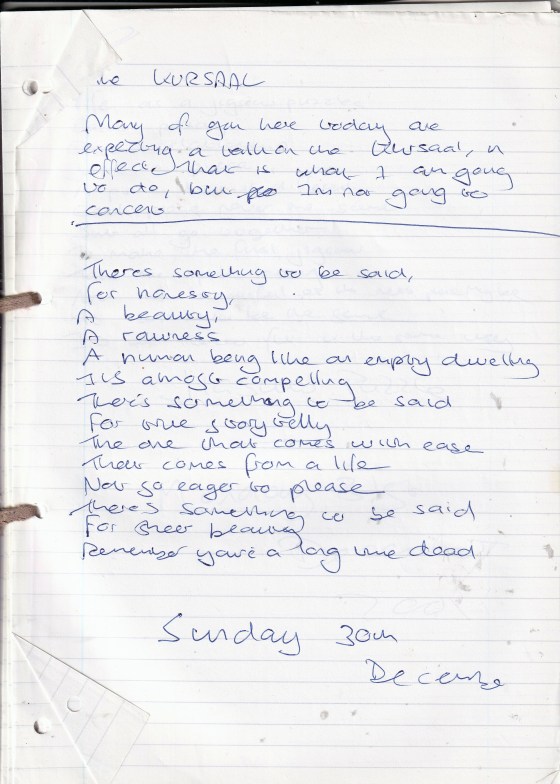 The KURSAAL
Many of you here today are
expecting a talk on the Kursaal, in
effect that is what I am going
to do, but I'm not going to
concen
Theres something to be said,
For honesty,
A beauty,
A rawness
A human being like an empty dwelling
It's almost compelling
There's something to be said
For true story telly
The one that comes with ease
That comes from a life
Not so eager to please
Theres something to be said
For sheer beauty
Remember you're a long time dead
Sunday 30th
December